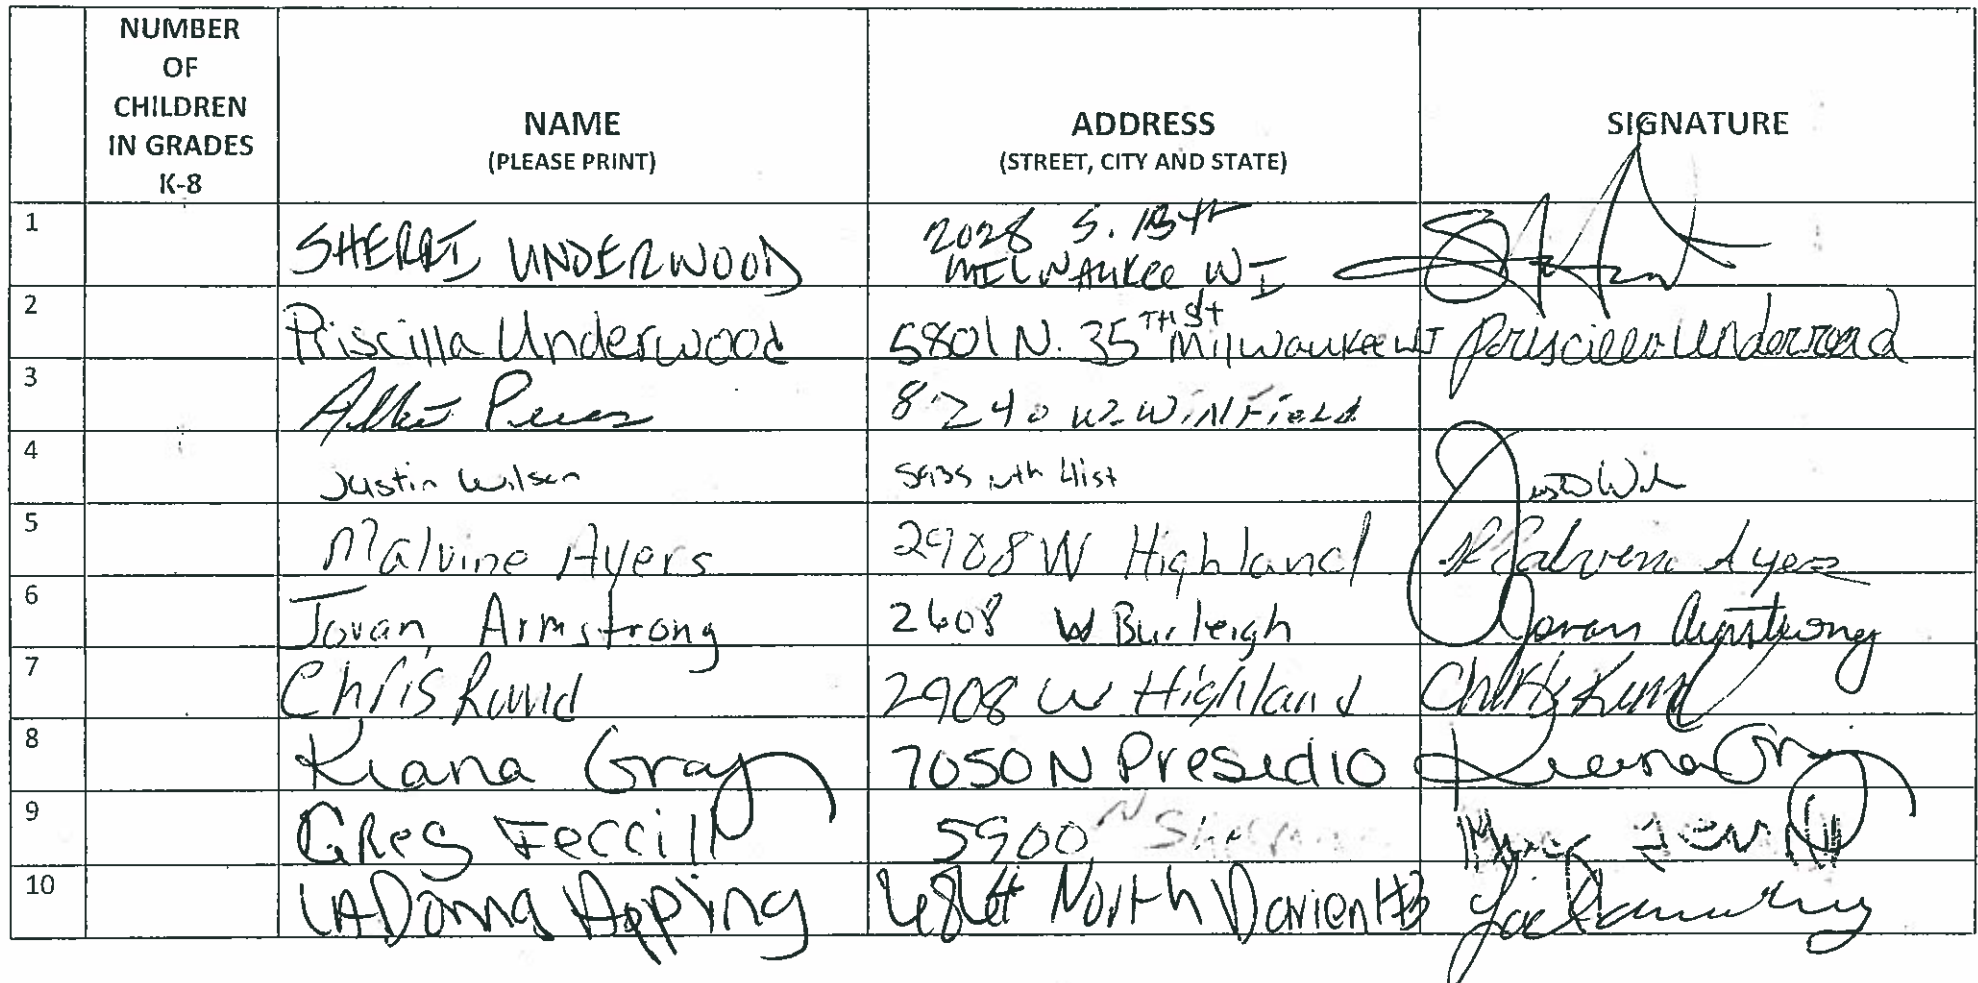 NUMBER
OF
CHILDREN
IN GRADES
K-8
NAME
(PLEASE PRINT)
ADDRESS
(STREET, CITY AND STATE)
SIGNATURE
1 SHERRI UNDERWOOD 2028 S. 13th
MILWAUKEE WI
2 Priscilla Underwood 5801 N. 35TH St Milwaukee WI Priscilla Underwood
3 8240 W WINField
4 Justin Wilson 41st
5 Malvine Ayers 2908 W Highland Ayers
6 Jovan Armstrong 2608 W Burleigh Jovan Armstrong
7 Chris 2908 W Highland Chris
8 Kiana Gray 7050 N Presidio Kiana Gray
9 GREG 5900 N
10 LADonna Apping North Darien #3